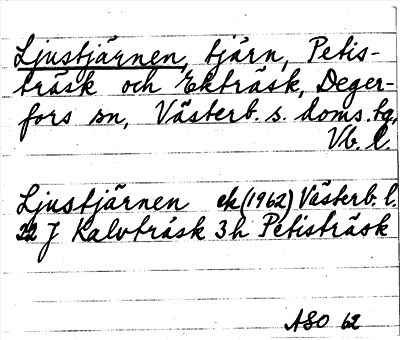 Ljustjärnen, tjärn, Petis-
träsk och Ekträsk, Deger-
fors sn, Västerb. s. doms. tg,
Vb. l.
Ljustjärnen ek (1962) Västerb. l.
22 J Kalvträsk 3 h Petisträsk
ASO 62